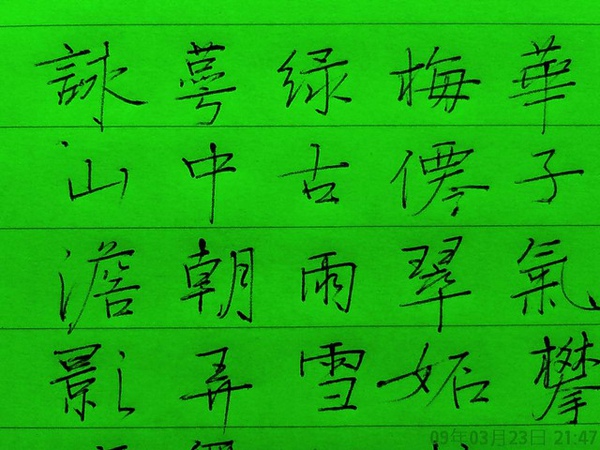 詠萼绿梅華
山中古僊子
澹朝雨翠氣
影弄雪妬攀
09年03月23日 21:47